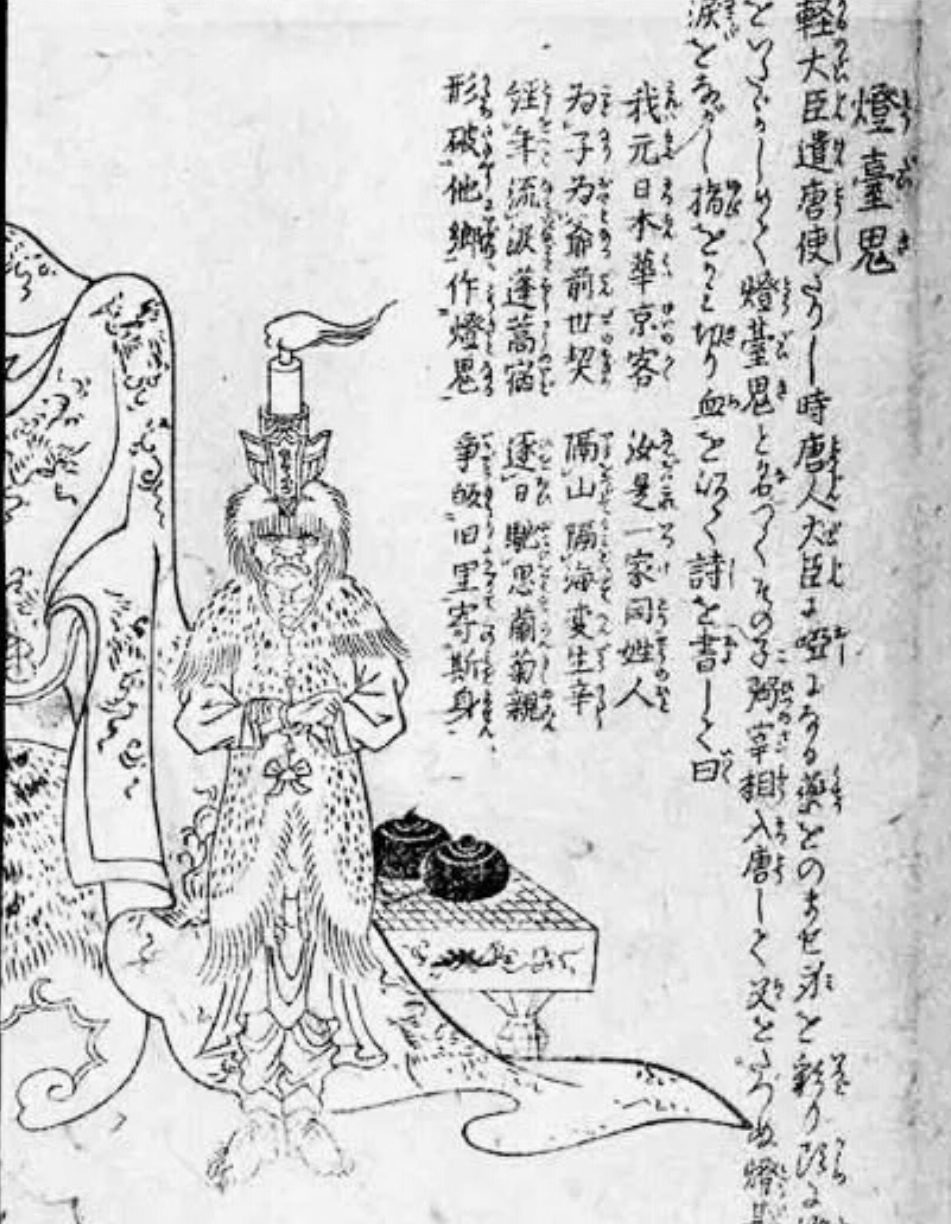 燈臺鬼
軽大臣遣唐使たりし時唐人大臣に唖になる薬をのませ身を彩り頭に
といたゞかしめて燈臺鬼と名づくその子弼宰相入唐して父をたづぬ燈
涙をながし指をかみ切り血を以て詩を書して曰
我元日本華京客 汝是一家同姓人
為子為爺前世契 隔山隔海変生辛
経年流涙蓬蒿宿 逐日馳思蘭菊親
形破他郷作燈鬼 争皈旧里寄斯身